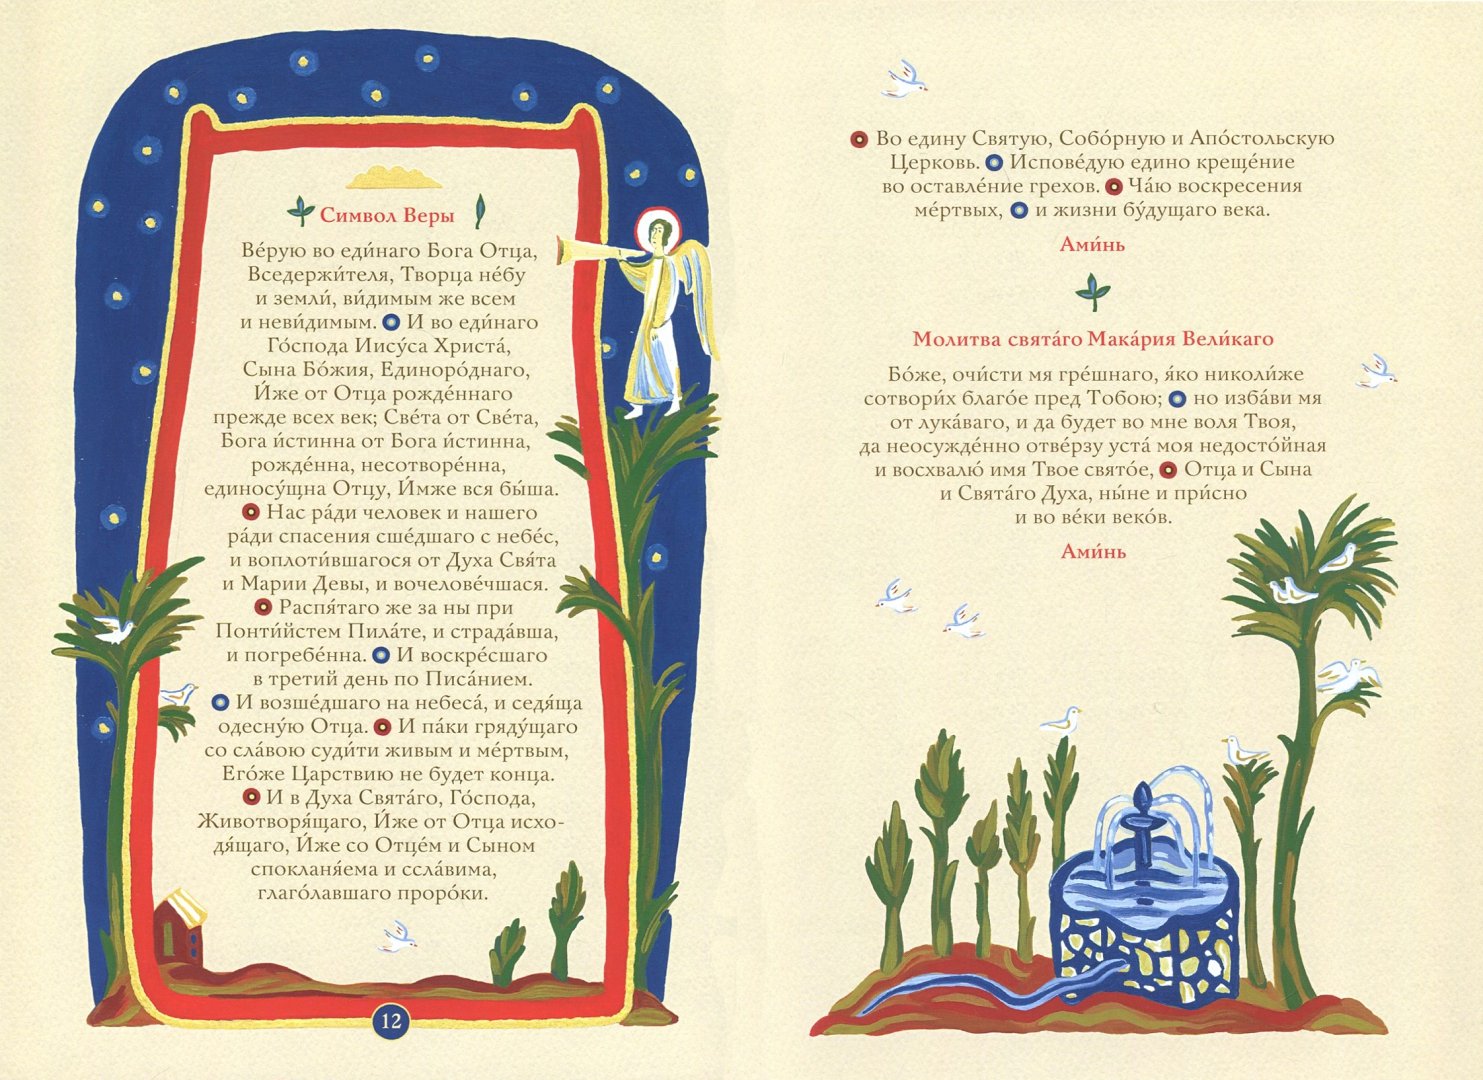 Символ Веры
Ве́рую во еди́наго Бога Отца,
Вседержи́теля, Творца не́бу
и земли́, ви́димым же всем
и неви́димым. И во еди́наго
Го́спода Иису́са Христа́,
Сына Бо́жия, Единоро́днаго,
И́же от Отца рожде́ннаго
прежде всех век; Све́та от Све́та,
Бога и́стинна от Бога и́стинна,
рожде́нна, несотворе́нна,
единосу́щна Отцу, И́мже вся бы́ша.
Нас ра́ди человек и нашего
ра́ди спасения сше́дшаго с небе́с,
и воплоти́вшагося от Духа Свя́та
и Марии Девы, и вочелове́чшася.
Распя́таго же за ны при
Понти́йстем Пила́те, и страда́вша,
и погребе́нна. И воскре́сшаго
в третий день по Писа́нием.
И возше́дшаго на небеса́, и седя́ща
одесну́ю Отца. И па́ки гряду́щаго
со сла́вою суди́ти живым и ме́ртвым,
Его́же Царствию не будет конца.
И в Духа Свята́го, Го́спода,
Животворя́щаго, И́же от Отца исхо-
дя́щаго, И́же со Отце́м и Сыном
спокланя́ема и ссла́вима,
глаго́лавшаго проро́ки.
12
Во едину Святую, Собо́рную и Апо́стольскую
Церковь. Испове́дую едино креще́ние
во оставле́ние грехов. Ча́ю воскресения
ме́ртвых, и жизни бу́дущаго века.
Ами́нь
Молитва свята́го Мака́рия Вели́каго
Бо́же, очи́сти мя гре́шнаго, я́ко николи́же
сотвори́х благо́е пред Тобою; но изба́ви мя
от лука́ваго, и да будет во мне воля Твоя,
да неосужде́нно отве́рзу уста́ моя недосто́йная
и восхвалю́ имя Твое свято́е, Отца и Сына
и Свята́го Духа, ны́не и при́сно
и во ве́ки веко́в.
Ами́нь